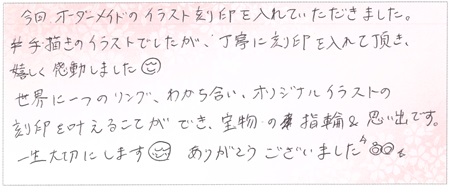 今回 オーダーメイドの イラスト 刻印を入れていただきました。
手描きのイラストでしたが、丁寧に刻印を入れて頂き、
嬉しく感動しました
世界に一つのリング、わかち合い、オリジナルイラストの
刻印を叶えることができ、宝物の指輪&思い出です。
一生大切にします ありがとうございました